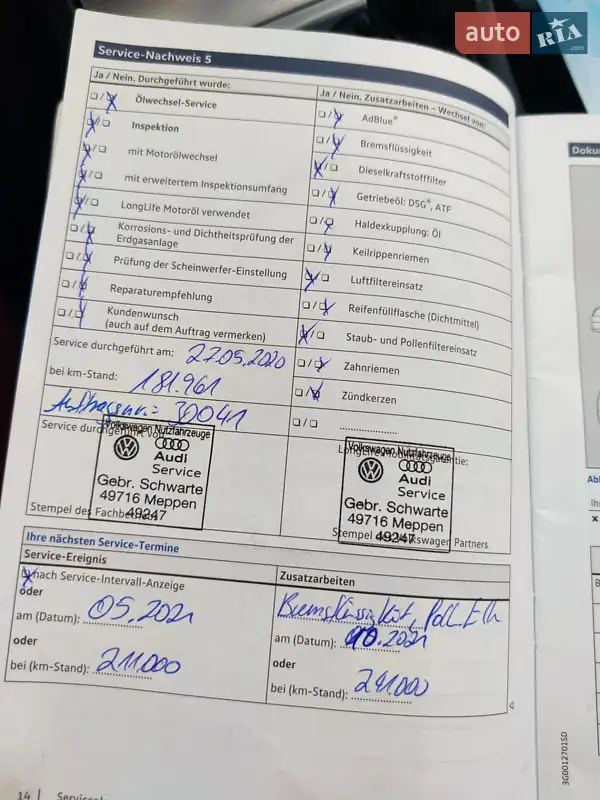 auto RIA .com
Service-Nachweis 5
Ja / Nein. Durchgeführt wurde:
Ölwechsel-Service
Inspektion
mit Motorölwechsel
mit erweitertem Inspektionsumfang
LongLife Motoröl verwendet
Korrosions- und Dichtheitsprüfung der
Erdgasanlage
Prüfung der Scheinwerfer-Einstellung
Reparaturempfehlung
Kundenwunsch
(auch auf dem Auftrag vermerken)
Ja / Nein. Zusatzarbeiten – Wechsel von:
AdBlue®
Bremsflüssigkeit
Dieselkraftstofffilter
Getriebeöl: DSG®, ATF
Haldexkupplung: Öl
Keilrippenriemen
Luftfiltereinsatz
Reifenfüllflasche (Dichtmittel)
Staub- und Pollenfiltereinsatz
Zahnriemen
Zündkerzen
Service durchgeführt am: 27.05.2020
bei km-Stand: 181.961
Auftragsnr.: 30041
Service durchgeführt von:
Volkswagen Nutzfahrzeuge
Audi
Service
Gebr. Schwarte
49716 Meppen
49247
Stempel des Fachbetriebs
LongLife Mobilitätsgarantie:
Volkswagen Nutzfahrzeuge
Audi
Service
Gebr. Schwarte
49716 Meppen
49247
Stempel Volkswagen Partners
Ihre nächsten Service-Termine
Service-Ereignis
nach Service-Intervall-Anzeige
oder
am (Datum): 05.2021
oder
bei (km-Stand): 211.000
Zusatzarbeiten
Bremsflüssigkeit, Poll.
am (Datum): 10.2021
oder
bei (km-Stand): 241.000
14 |
3G0012701SD
Doku